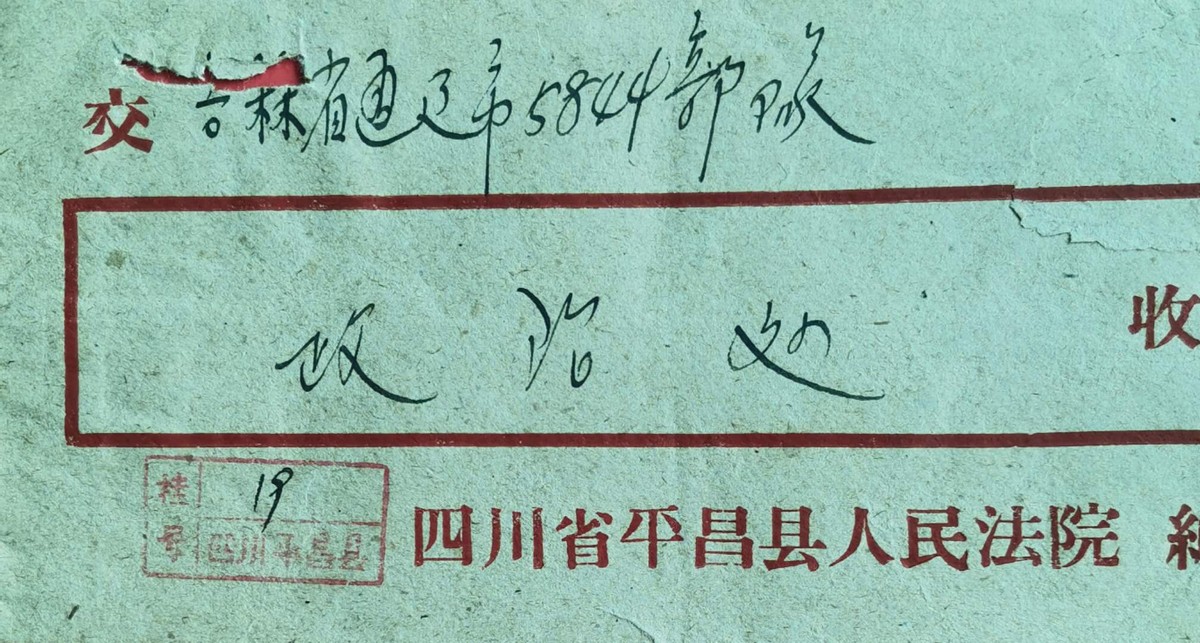 交 吉林省通辽市5844部队
政治处 收
挂号 19 四川平昌县
四川省平昌县人民法院